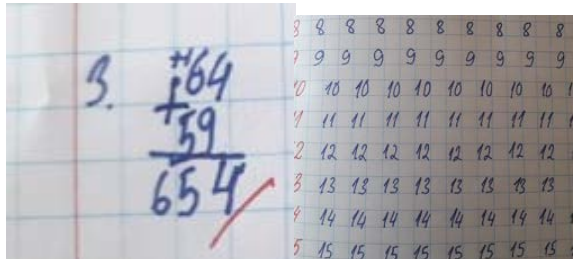 3.
+1 64
+
59
654
8 8 8 8 8 8 8 8 8 8
9 9 9 9 9 9 9 9 9 9
0 10 10 10 10 10 10 10 10 1
1 11 11 11 11 11 11 11 11 1
2 12 12 12 12 12 12 12 12
3 13 13 13 13 13 13 13 13
4 14 14 14 14 14 14 14 14
5 15 15 15 15 15 15 15 15